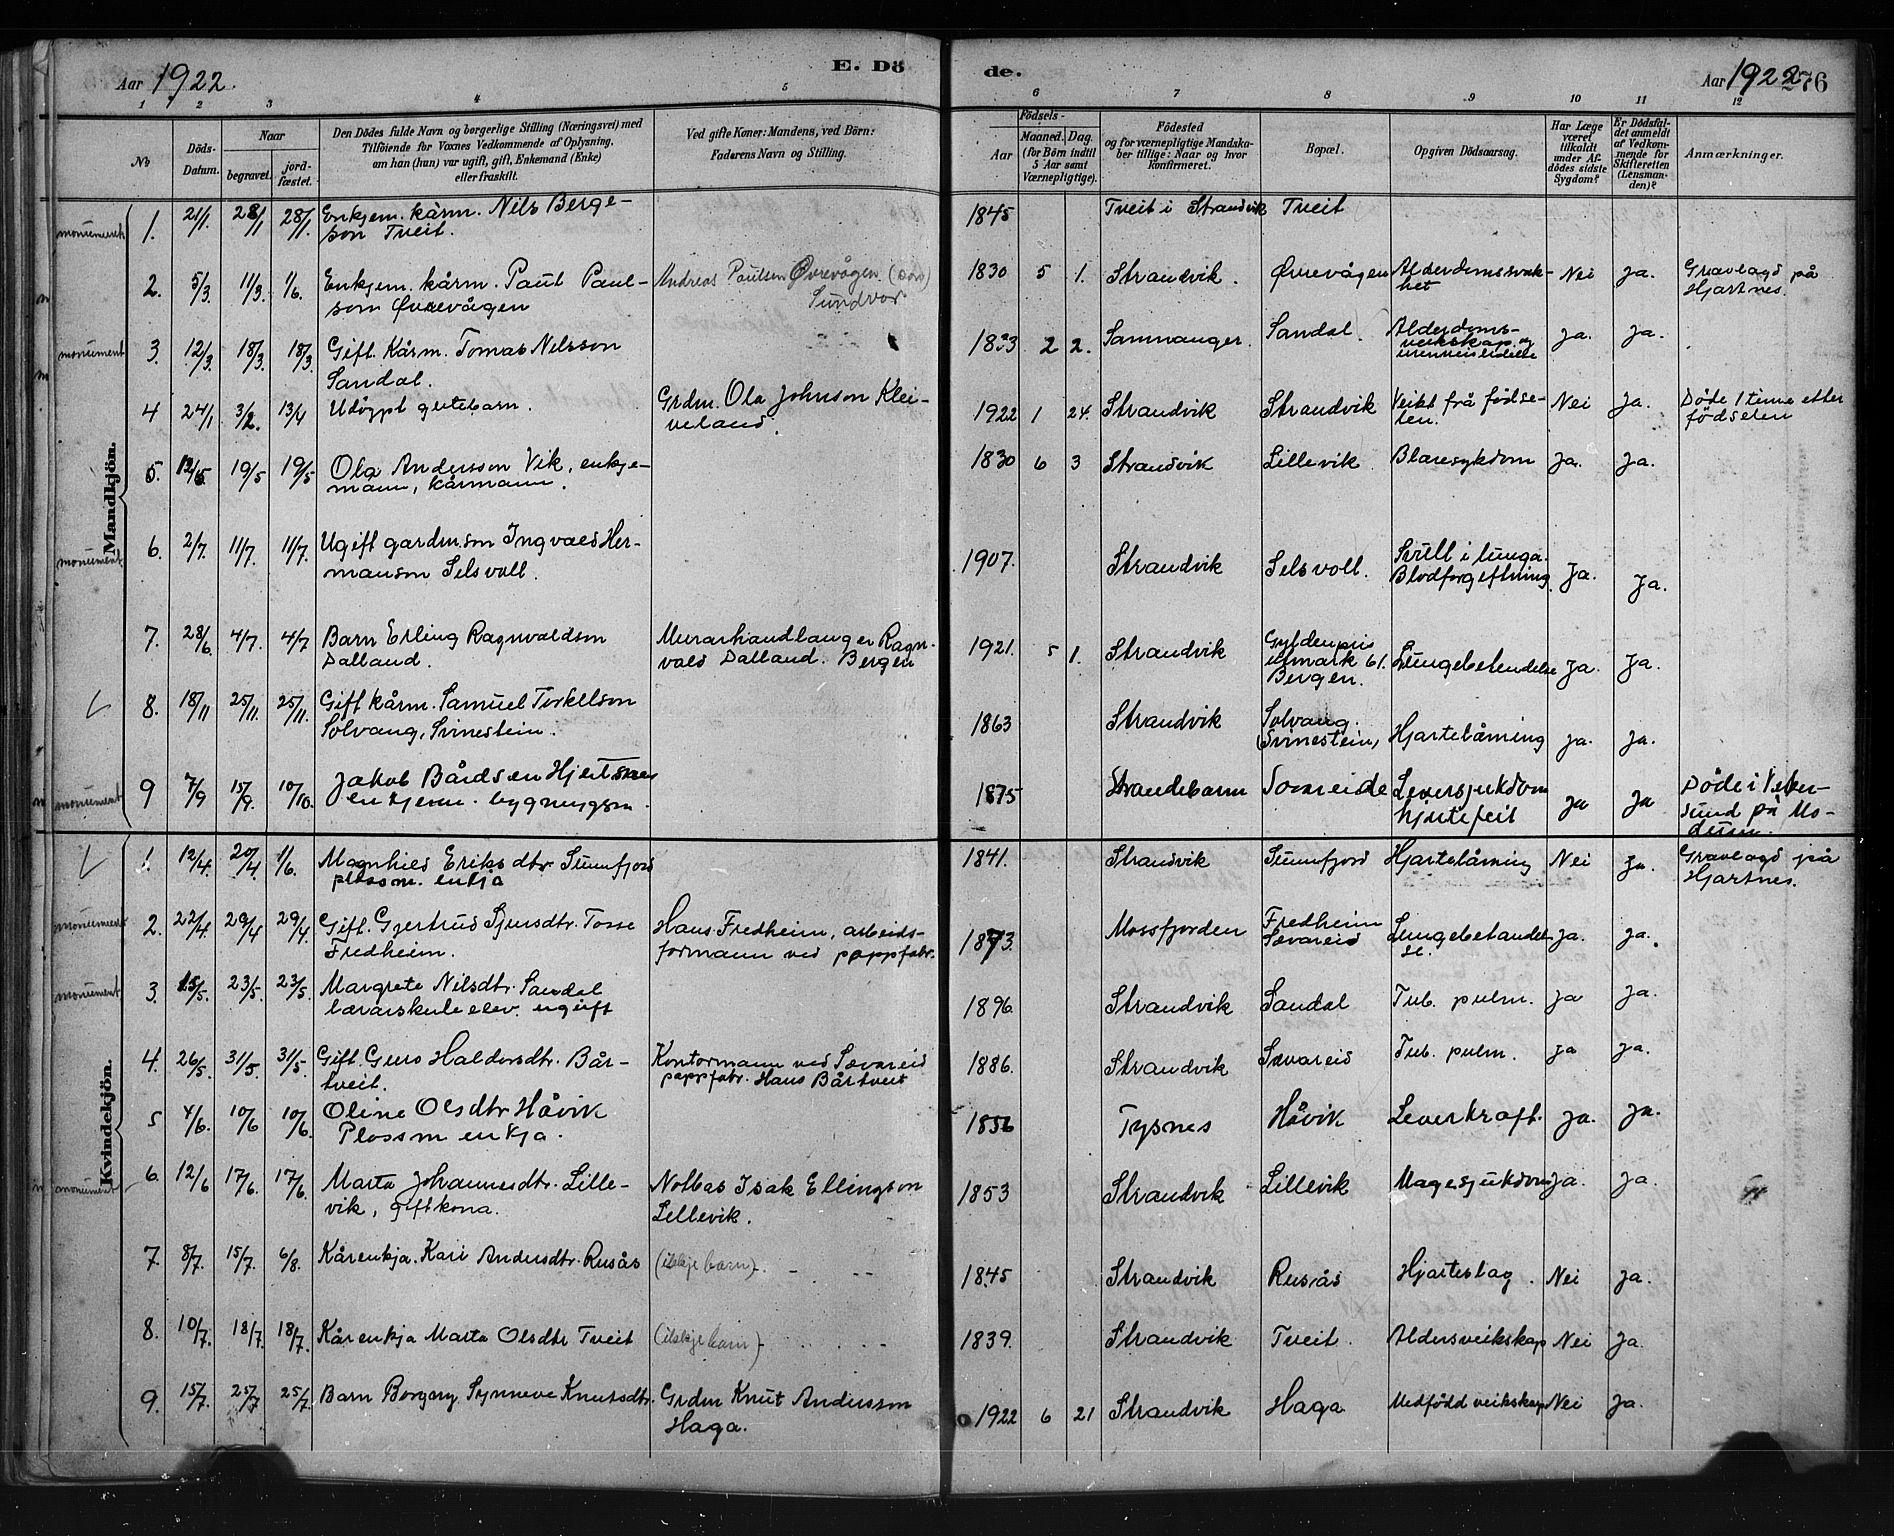 Aar 1922.
E. Dö
de.
Aar 1922
276
1
2
3
4
5
6
7
8
9
10
11
12
No
Döds-
Datum.
Naar
begravet.
jord-
fæstet.
Den Dödes fulde Navn og borgerlige Stilling (Næringsvei) med
Tilföiende for Voxnes Vedkommende af Oplysning,
om han (hun) var ugift, gift, Enkemand (Enke)
eller fraskilt.
Ved gifte Koner: Mandens, ved Börn:
Faderens Navn og Stilling.
Födsels-
Aar
Maaned.
Dag.
(for Börn indtil
5 Aar samt
Værnepligtige).
Födested
og for værnepligtige Mandska-
ber tillige: Naar og hvor
konfirmeret.
Bopæl.
Opgiven Dödsaarsag.
Har Læge
været
tilkaldt
under Af-
dödes sidste
Sygdom?
Er Dödsfal-
det anmeldt
af Vedkom-
mende for
Skifteretten
(Lensman-
den)?
Anmærkninger.
Mandkjön.
monument 1. 21/1. 28/1 28/1. Enkjem. kårm. Nils Berge- 1845 Tveit i Strandvik Tveit
son Tveit.
2. 5/3. 11/3. 1/6. Enkjem. kårm. Paul Paul- Andreas Paulsen Øvrevågen (sön) 1830 5 1. Strandvik. Øvrevågen Alderdomssvak- Nei Ja. Gravlagd på
son Øvrevågen Sundvor het Hjartnes.
monument 3. 12/3 18/3. 18/3 Gift. Kårm. Tomas Nilsson 1833 2 2. Samnanger. Sandal. Alderdoms- Ja. Ja.
Sandal. veikskap og
4 24/1 3/2. 13/4 Udöypt gutebarn. Grdm. Ola Johnson Klei- 1922 1 24. Strandvik Strandvik Veikt frå födse- Nei Ja. Döde 1 time etter
veland. len. födselen
5. 12/5 19/5 19/5 Ola Andersson Vik, enkje- 1830 6 3 Strandvik Lillevik Blæresykdom Ja. Ja.
mann, kårmann.
monument 6. 2/7. 11/7. 11/7. Ugift gardm.son Ingvald Her- 1907. Strandvik Selsvoll. Svull i lunga. Ja. Ja.
manson Selsvoll. Blodforgeftning
7. 28/6. 4/7. 4/7 Barn Erling Ragnvaldson Murarhandlanger Ragn- 1921. 5 1. Strandvik Gyldenpris Lungebetendelse Ja. Ja.
Dalland. vald Dalland. Bergen utmark 61.
Bergen.
8. 18/11 25/11. 25/11. Gift kårm. Samuel Torkellson 1863 Strandvik Solvang. Hjartelåming Ja. Ja.
Solvang, Svinestein. (Svinestein)
monument 9 7/9 15/9. 10/10. Jakob Bårdsen Hjertnæs 1875 Strandebarm Sævareide Leversjukdom Ja Ja Döde i Viker-
enkjem. bygningsm. hjartefeil sund på Mo-
dum.
Kvindekjön.
1. 12/4. 20/4. 1/6. Magnhild Eriksdtr Sumfjord 1841. Strandvik Sumfjord Hjartelåming Nei Ja. Gravlagd på
plassm. enkja Hjartnes.
monument 2. 22/4. 29/4 29/4. Gift. Gjertrud Sjursdtr. Tosse Hans Fredheim, arbeids- 1873. Mossfjorden Fredheim Lungebetandel- Ja. Ja.
Fredheim. formann ved pappfabr. Sævareid se.
monument 3. 15/5. 23/5. 23/5. Margrete Nilsdtr. Sandal 1896 Strandvik Sandal Tub. pulm. Ja Ja.
lærarskule elev. ugift
4. 26/5. 31/5. 31/5. Gift. Guro Haldorsdtr. Bår- Kontormann ved Sævareid 1886. Strandvik Sævareid Tub. pulm. Ja Ja.
tveit. pappfabr. Hans Bårtveit
5 4/6. 10/6 10/6. Oline Olsdtr Håvik 1856 Tysnes Håvik Leverkraft. Ja. Ja.
Plassm enkja.
monument 6. 12/6 17/6. 17/6. Marta Johannesdtr. Lille- Notbas Isak Ellingson 1853 Strandvik Lillevik Magesjukdom Ja. Ja.
vik, gift kona. Lillevik.
7 8/7. 15/7. 6/8. Kårenkja. Kari Andersdtr. Rusås (ikkje barn) 1845 Strandvik Rusås Hjarteslag. Nei Ja.
8. 10/7. 18/7. 18/7. Kårenkja Marta Olsdtr Tveit (ikkje barn) 1839. Strandvik Tveit. Aldersveikskap Nei Ja.
9. 15/7. 25/7 25/7. Barn Borgny Synneve Knutsdtr. Grdm Knut Andersson 1922 6 21 Strandvik Haga Medfödd veikskap Nei Ja.
Haga.